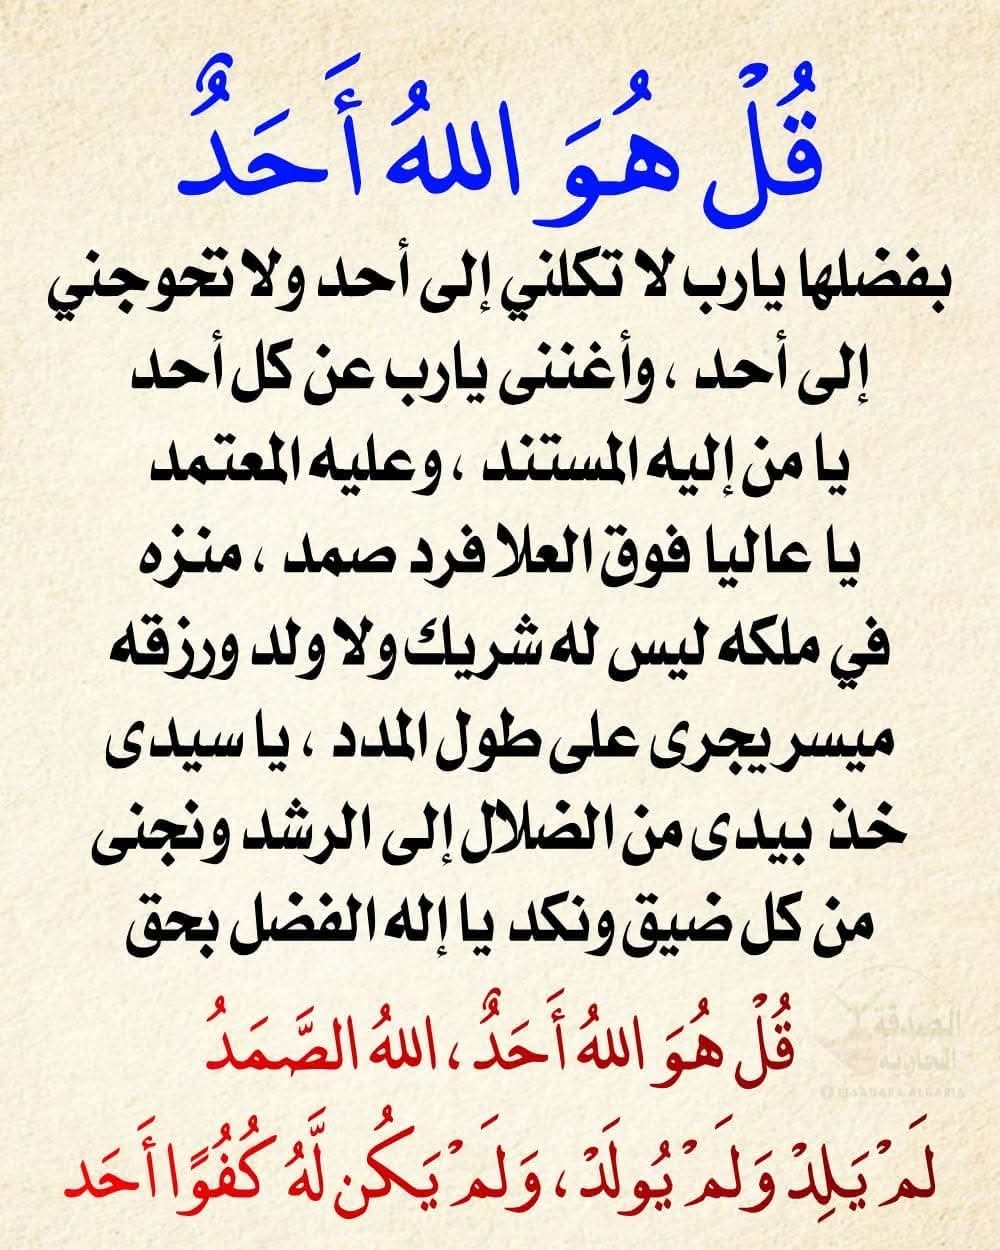 قُلْ هُوَ اللهُ أَحَدٌ
بفضلها يارب لا تكلني إلى أحد ولا تحوجني
إلى أحد ، وأغننى يارب عن كل أحد
يا من إليه المستند ، وعليه المعتمد
يا عاليا فوق العلا فرد صمد ، منزه
في ملكه ليس له شريك ولا ولد ورزقه
ميسر يجرى على طول المدد ، يا سيدى
خذ بيدى من الضلال إلى الرشد ونجنى
من كل ضيق ونكد يا إله الفضل بحق
قُلْ هُوَ اللهُ أَحَدٌ ، اللهُ الصَّمَدُ
الصدقة
الجارية
لَمْ يَلِدْ وَلَمْ يُولَدْ ، وَلَمْ يَكُن لَّهُ كُفُوًا أَحَد